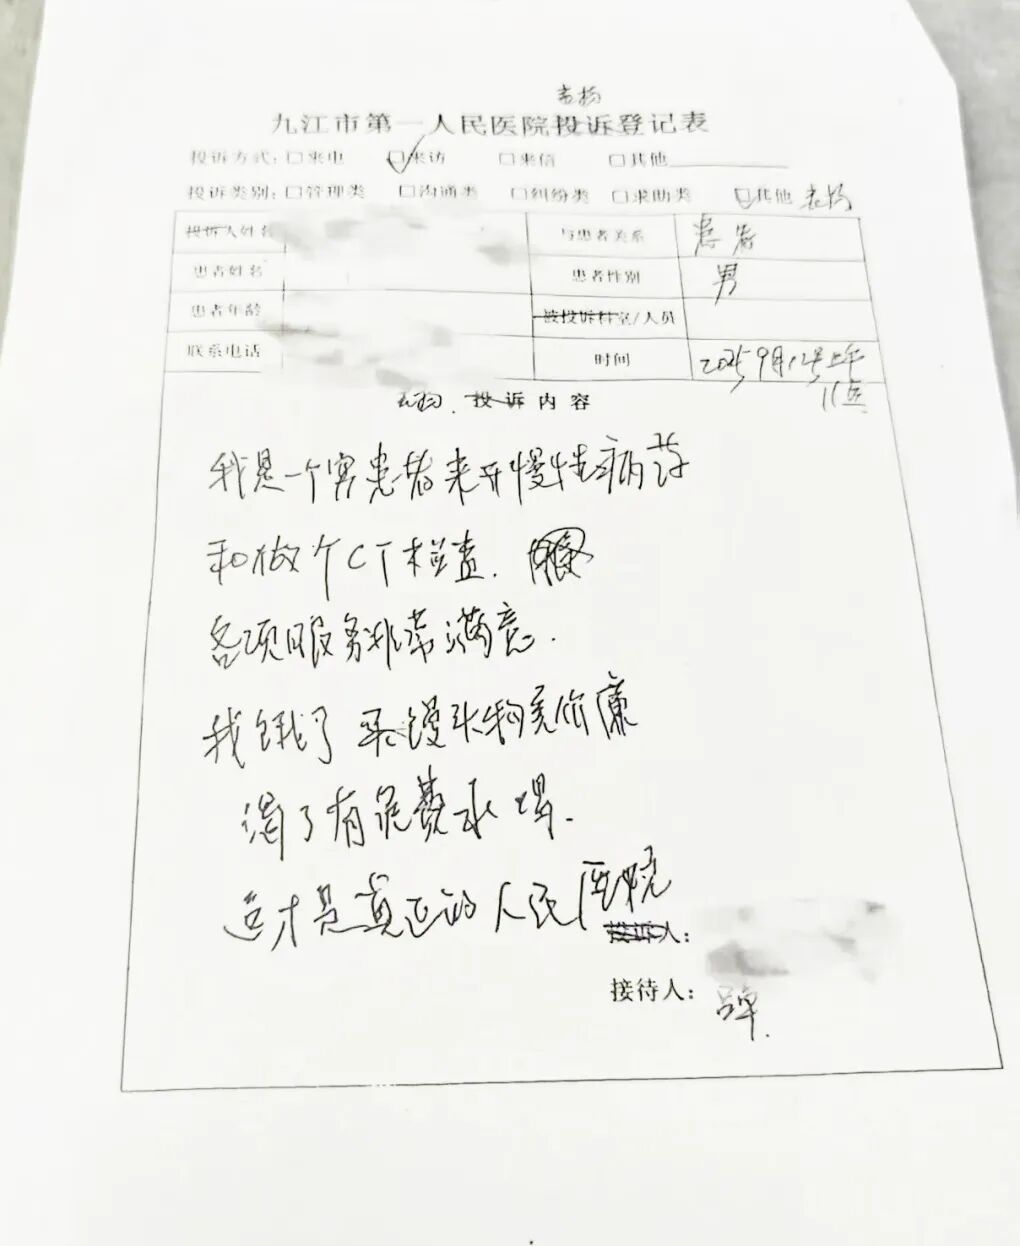 表扬
九江市第一人民医院投诉登记表
投诉方式：□来电 □来访 □来信 □其他
投诉类别：□管理类 □沟通类 □纠纷类 □求助类 □其他 表扬
投诉人姓名 与患者关系 患者
患者姓名 患者性别 男
患者年龄 被投诉科室/人员
联系电话 时间 2025年9月12号上午
11点
表扬 投诉内容
我是一个穷患者来开慢性病药
和做个CT检查.
各项服务非常满意.
我饿了 买馒头物美价廉
渴了有免费水喝.
这才是真正的人民医院
人：
接待人：